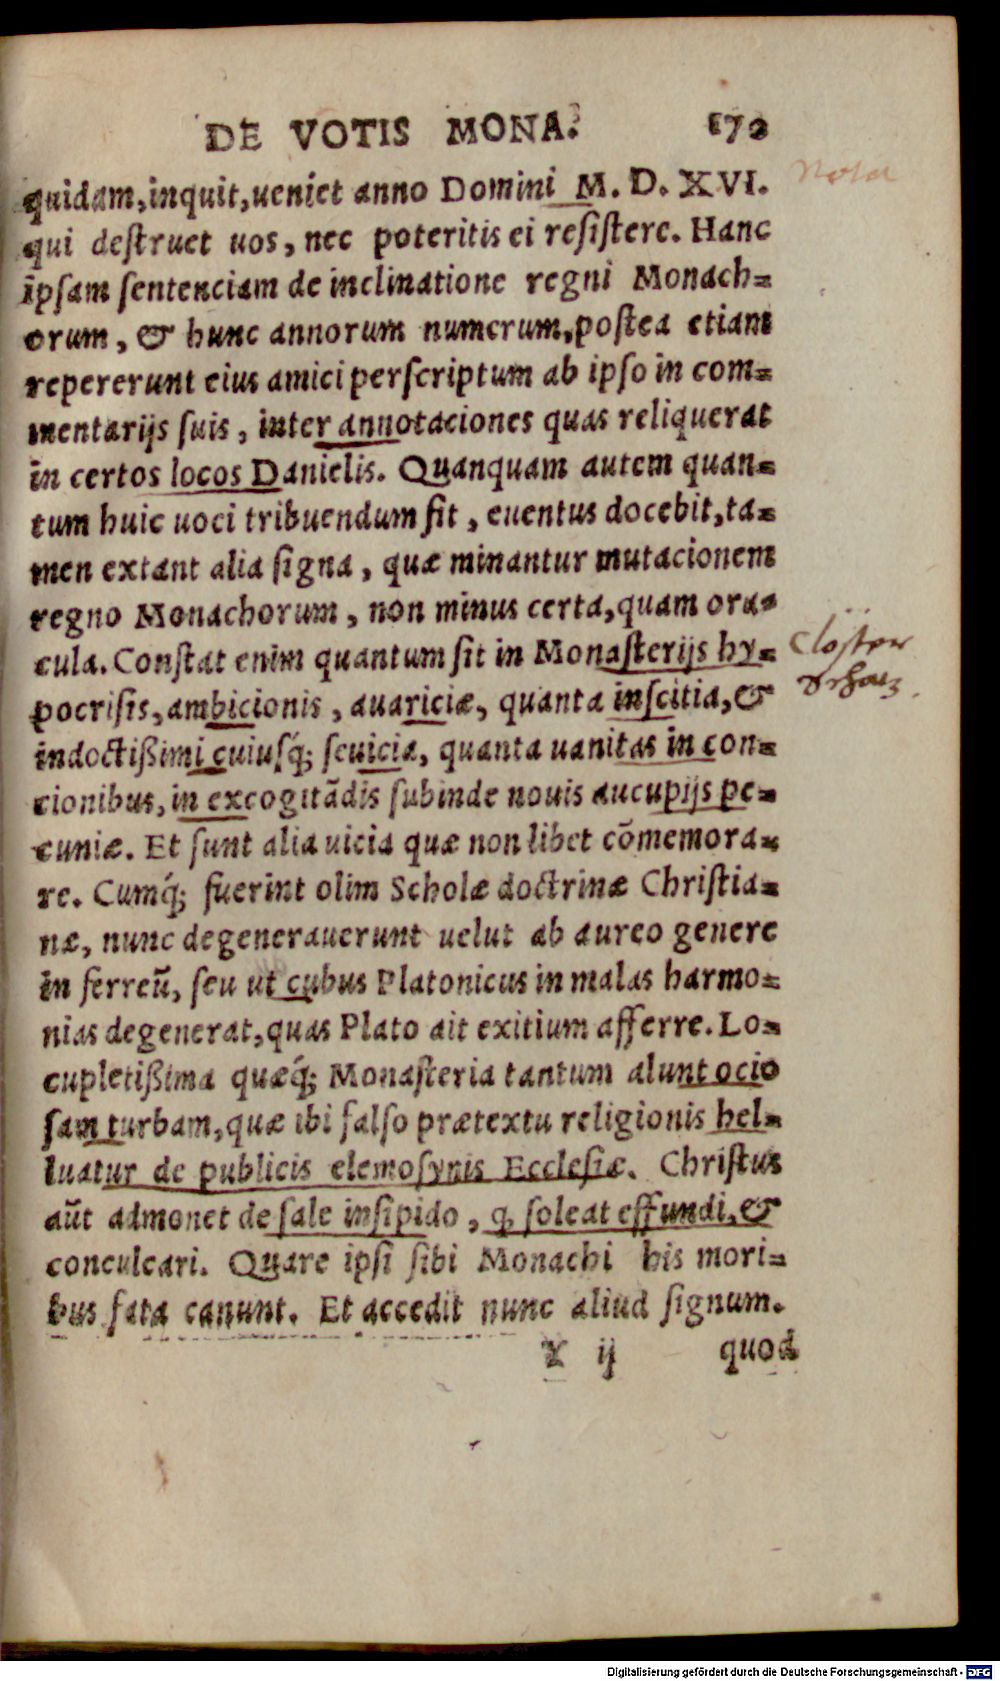 DE VOTIS MONA. 172
Nota
quidam, inquit, ueniet anno Domini M. D. XVI.
qui destruet uos, nec poteritis ei resistere. Hanc
ipsam sentenciam de inclinatione regni Monach=
orum, & hunc annorum numerum, postea etiam
repererunt eius amici perscriptum ab ipso in com=
mentarijs suis, inter annotaciones quas reliquerat
in certos locos Danielis. Quanquam autem quan=
tum huic uoci tribuendum sit, euentus docebit, ta=
men extant alia signa, quæ minantur mutacionem
regno Monachorum, non minus certa, quam ora=
cula. Constat enim quantum sit in Monasterijs hy=
Closter
pocrisis, ambicionis, auariciæ, quanta inscitia, &
indoctißimi cuiusq́; seuicia, quanta uanitas in con=
cionibus, in excogitādis subinde nouis aucupijs pe=
cuniæ. Et sunt alia uicia quæ non libet cōmemora=
re. Cumq́; fuerint olim Scholæ doctrinæ Christia=
næ, nunc degenerauerunt uelut ab aureo genere
in ferreū, seu ut cubus Platonicus in malas harmo=
nias degenerat, quas Plato ait exitium afferre. Lo=
cupletißima quæq́; Monasteria tantum alunt ocio
sam turbam, quæ ibi falso prætextu religionis hel=
luatur de publicis elemosynis Ecclesiæ. Christus
aūt admonet de sale insipido, q̄ soleat effundi, &
conculcari. Quare ipsi sibi Monachi his mori=
bus fata canunt. Et accedit nunc aliud signum.
Y ij quod
Digitalisierung gefördert durch die Deutsche Forschungsgemeinschaft - DFG